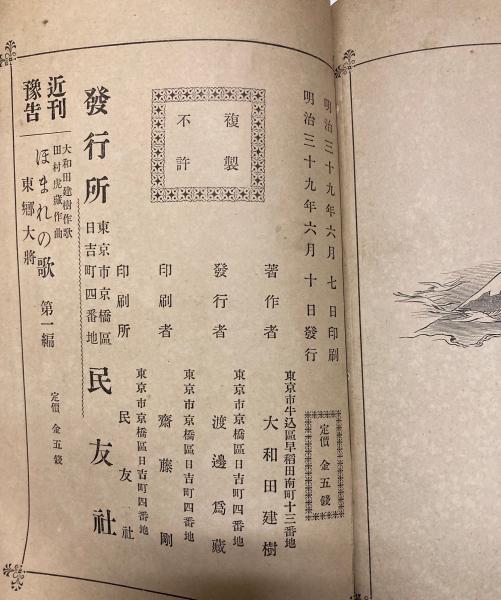 明治三十九年六月七日印刷
明治三十九年六月十日發行
定價金五錢
複製
不許
著作者
東京市牛込區早稻田南町十三番地
大和田建樹
發行者
東京市京橋區日吉町四番地
渡邊爲藏
印刷者
東京市京橋區日吉町四番地
齋藤剛
印刷所
東京市京橋區日吉町四番地
民友社
發行所
東京市京橋區
日吉町四番地
民友社
近刊
豫告
大和田建樹作歌
田村虎藏作曲
ほまれの歌 第一編
東鄕大將
定價金五錢